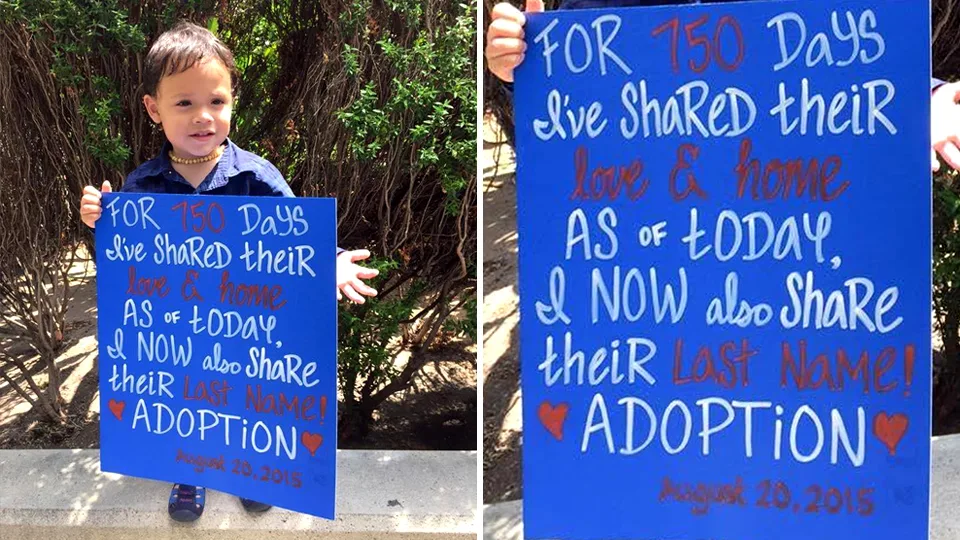 FOR 750 Days
I've ShaRED theiR
love & home
AS OF tODAY,
I NOW also ShaRe
theiR Last Name!
ADOPTiON
August 20, 2015
FOR 750 Days
I've ShaRED theiR
love & home
AS OF tODAY,
I NOW also ShaRe
theiR Last Name!
ADOPTiON
August 20, 2015